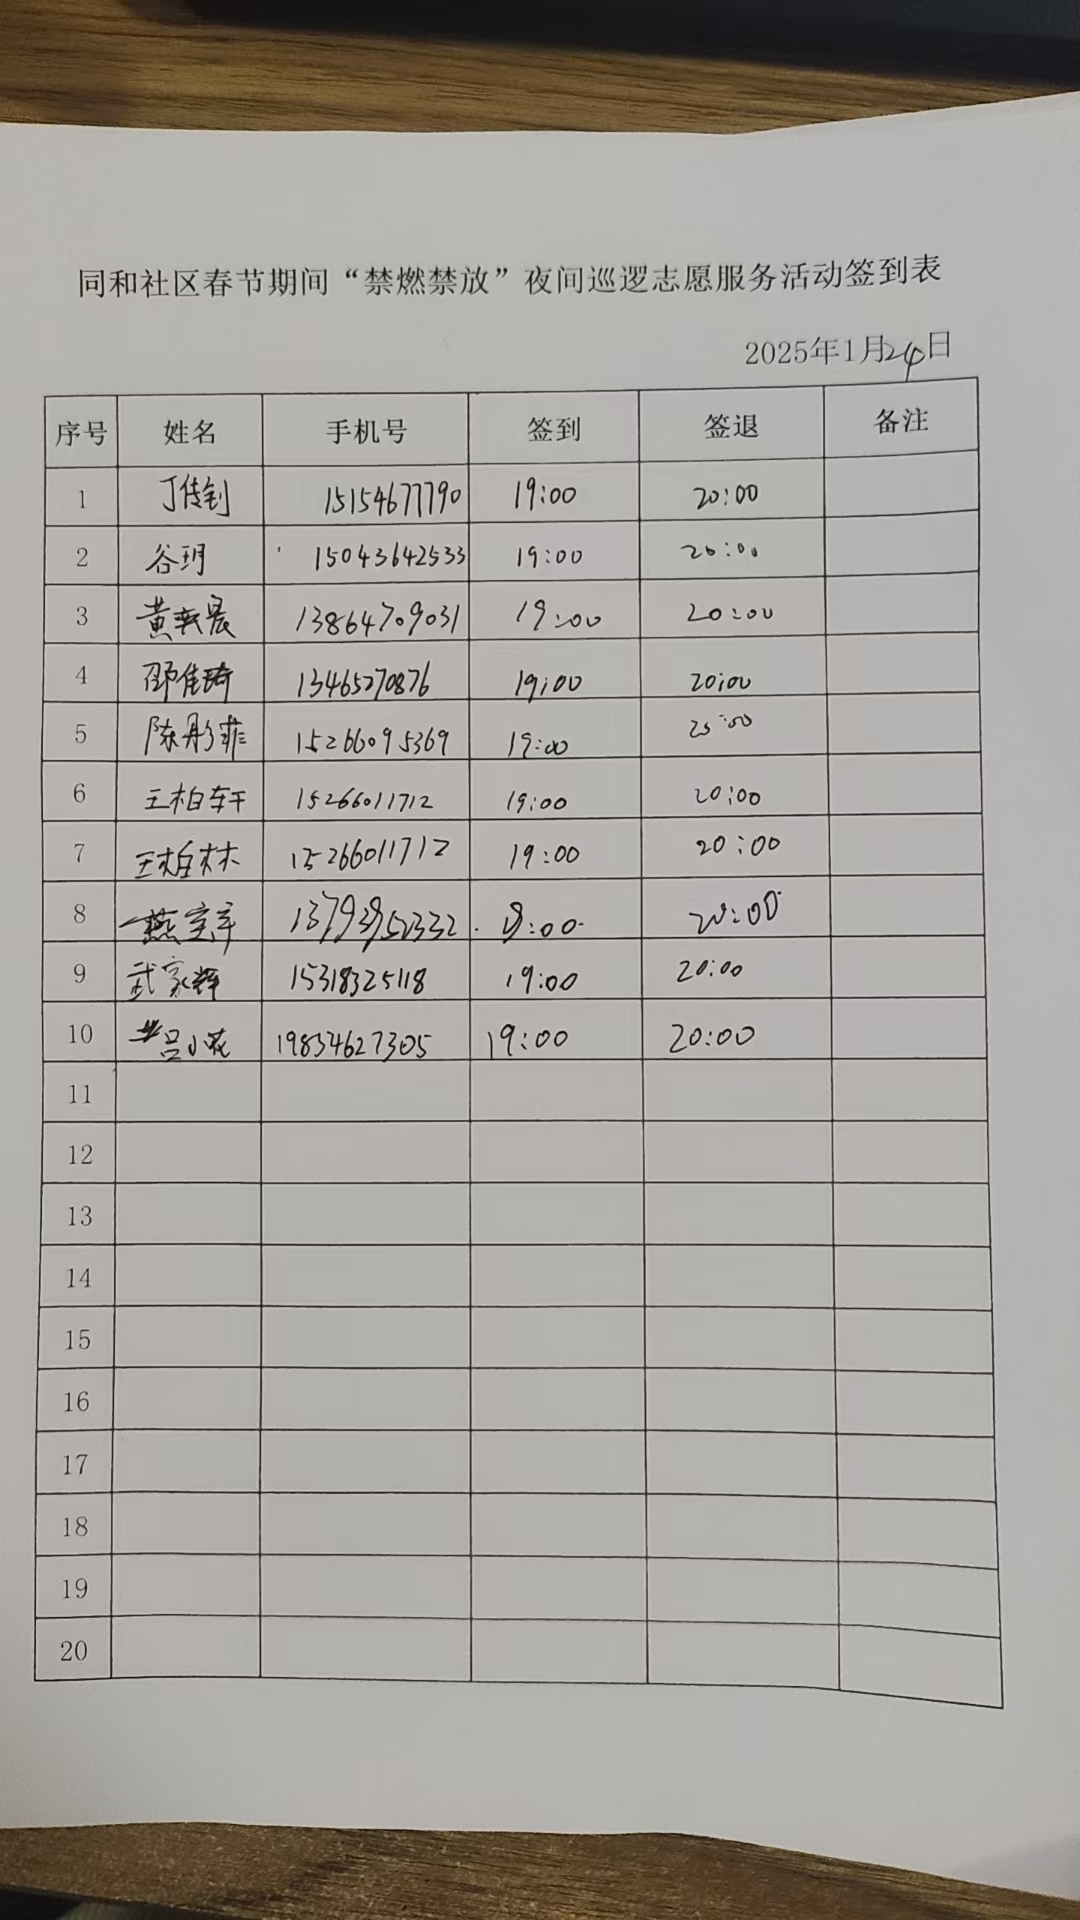 同和社区春节期间“禁燃禁放”夜间巡逻志愿服务活动签到表
2025年1月24日
序号 姓名 手机号 签到 签退 备注
1 丁传钊 15154677790 19:00 20:00
2 谷玥 15043642533 19:00 20:00
3 黄燕晨 13864709031 19:00 20:00
4 邵佳琦 13465270876 19:00 20:00
5 陈彤菲 15266095369 19:00 20:00
6 王柏轩 15266011712 19:00 20:00
7 王柏林 15266011712 19:00 20:00
8 燕 19:00 20:00
9 武家辉 15318325118 19:00 20:00
10 吕小花 19834627305 19:00 20:00
11
12
13
14
15
16
17
18
19
20